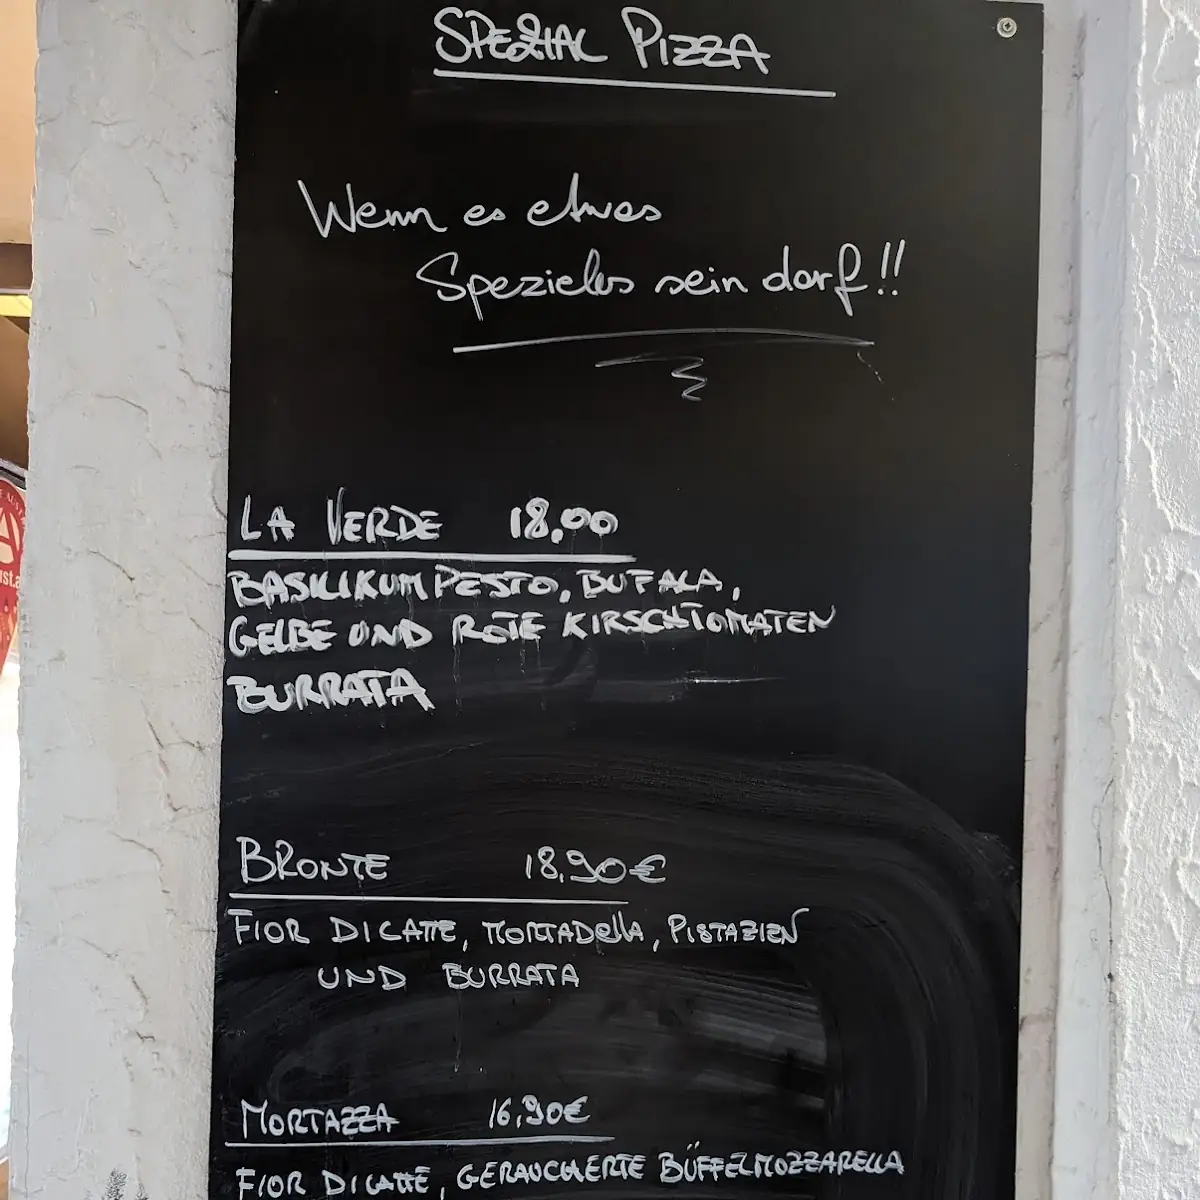 SPEZIAL PIZZA
Wenn es etwas
Spezieles sein darf!!
LA VERDE 18,00
BASILIKUM PESTO, BUFALA,
GELBE UND ROTE KIRSCHTOMATEN
BURRATA
BRONTE 18,90€
FIOR DI LATTE, MORTADella, PISTAZIEN
UND BURRATA
MORTAZZA 16,90€
FIOR DI LATTE, GERAUCHERTE BÜFFELMOZZARELLA